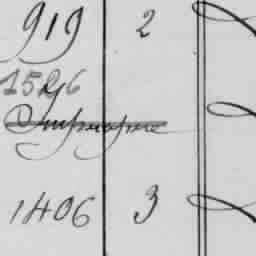 919 2
1526
1406 3